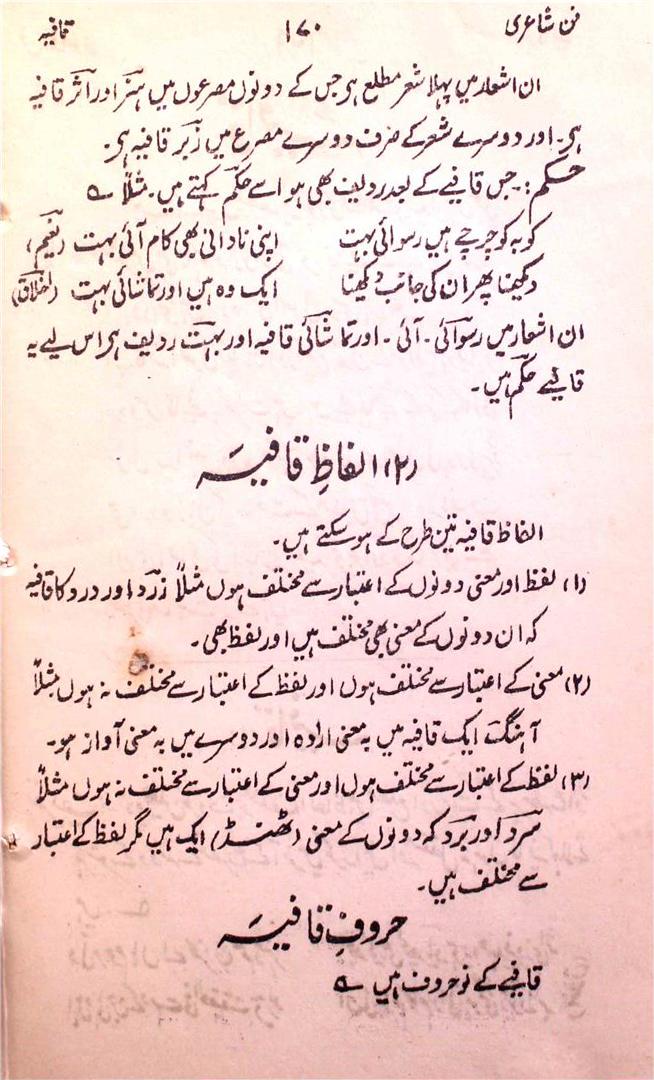 فن شاعری ۱۷۰ قافیہ
ان اشعار میں پہلا شعر مطلع ہر جس کے دونوں مصرعوں میں ہنر اور اثر قافیہ
ہر۔ اور دوسرے شعر کے صرف دوسرے مصرع میں زبر قافیہ ہر۔
حکم :- جس قافیے کے بعد ردیف بھی ہو اسے حکم کہتے ہیں۔ مثلاً ؎
کو بہ کو چرچے ہیں رسوائی بہت اپنی نادانی بھی کام آئی بہت (نعیم)
دیکھنا پھر ان کی جانب دیکھنا ایک وہ ہیں اور تماشائی بہت (اخلاق)
ان اشعار میں رسوائی۔ آئی۔ اور تماشائی قافیہ اور بہت ردیف ہر اس لیے یہ
قافیے حکم ہیں۔
(۲) الفاظِ قافیہ
الفاظ قافیہ تین طرح کے ہو سکتے ہیں۔
(۱) لفظ اور معنی دونوں کے اعتبار سے مختلف ہوں مثلاً زرد اور درد کا قافیہ
کہ ان دونوں کے معنی بھی مختلف ہیں اور لفظ بھی۔
(۲) معنی کے اعتبار سے مختلف ہوں اور لفظ کے اعتبار سے مختلف نہ ہوں مثلاً
آہنگ ایک قافیہ میں بہ معنی ارادہ اور دوسرے میں بہ معنی آواز ہو۔
(۳) لفظ کے اعتبار سے مختلف ہوں اور معنی کے اعتبار سے مختلف نہ ہوں مثلاً
سرد اور برد کہ دونوں کے معنی (ٹھنڈ) ایک ہیں مگر لفظ کے اعتبار
سے مختلف ہیں۔
حروفِ قافیہ
قافیے کے نو حروف ہیں ؎